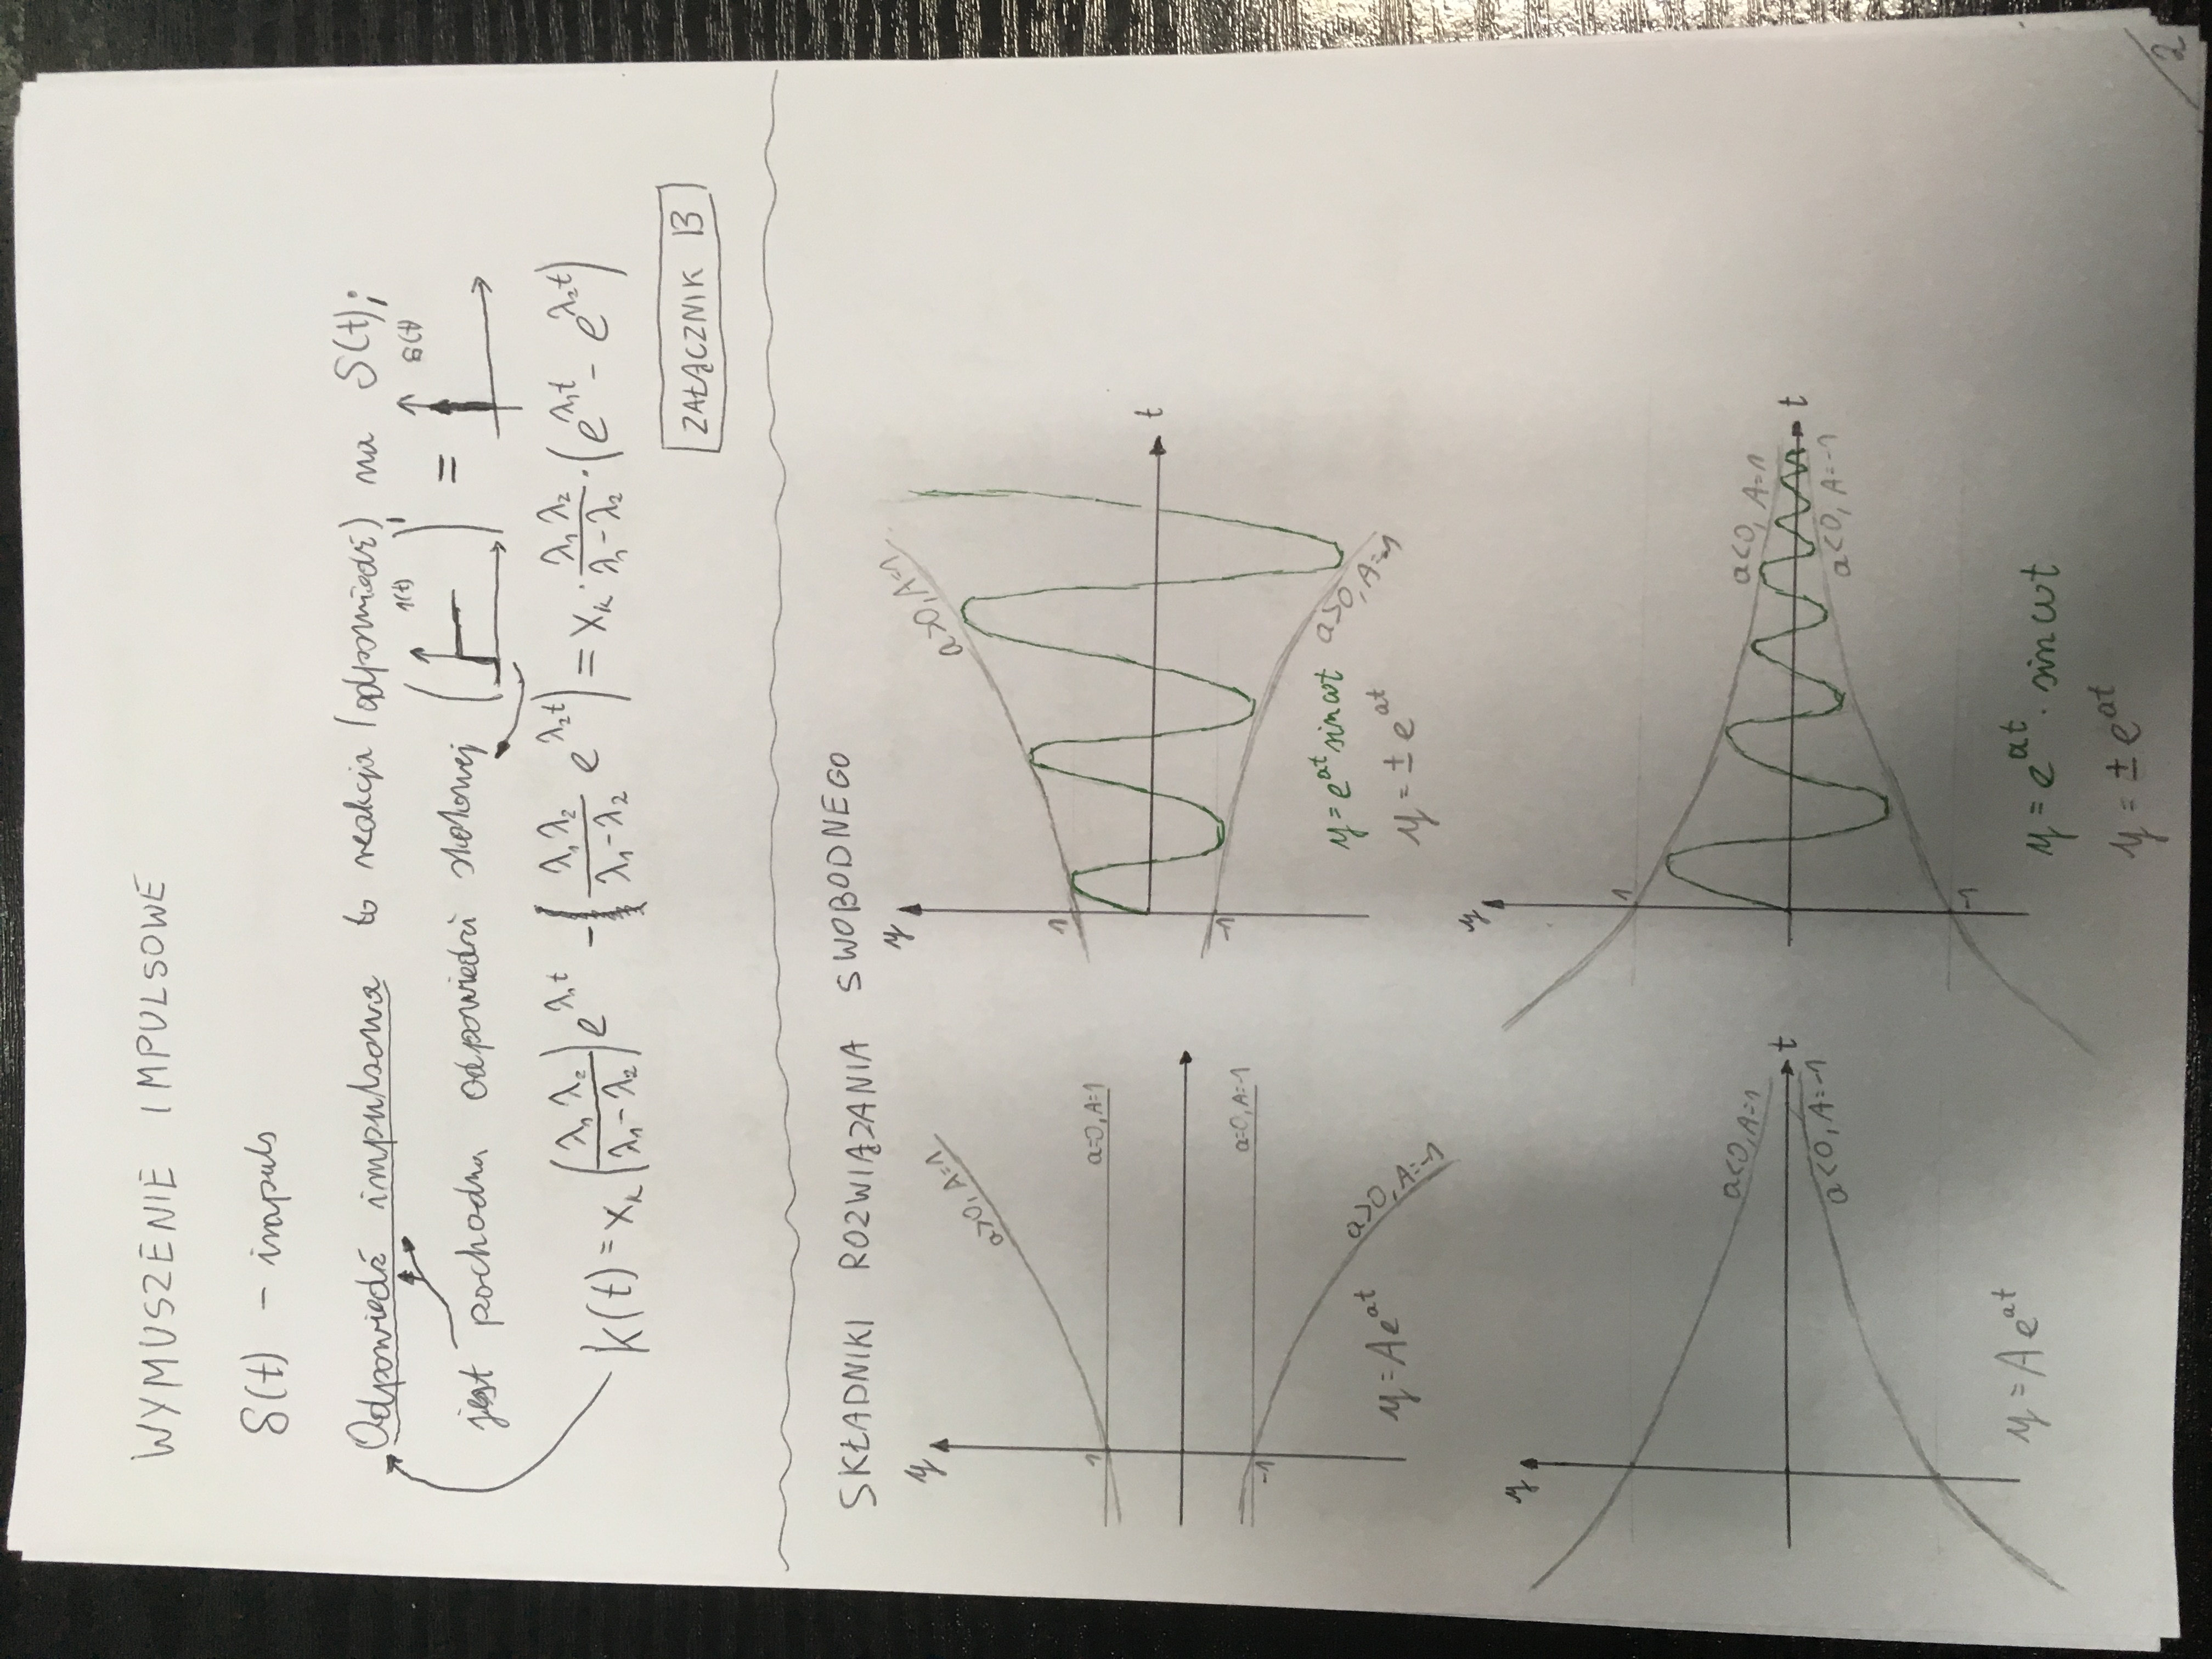 WYMUSZENIE IMPULSOWE
δ(t) – impuls
Odpowiedź impulsowa to reakcja (odpowiedź) na δ(t);
jest pochodną odpowiedzi skokowej ( 1(t) )' = δ(t)
k(t) = x_k (λ₁ λ₂ / λ₁-λ₂) e^{λ₁t} - ( λ₁ λ₂ / λ₁-λ₂ e^{λ₂t} ) = x_k · λ₁ λ₂ / λ₁-λ₂ · (e^{λ₁t} - e^{λ₂t})
ZAŁĄCZNIK B
SKŁADNIKI ROZWIĄZANIA SWOBODNEGO
y
a>0, A=1
1
a=0, A=1
a=0, A=-1
-1
a>0, A=-1
y = Ae^{at}
y
a>0, A=1
1
t
-1
y = e^{at} sin ωt
a>0, A=-1
y = ± e^{at}
y
a<0, A=1
t
a<0, A=-1
y = Ae^{at}
y
1
a<0, A=1
t
a<0, A=-1
-1
y = e^{at} · sin ωt
y = ± e^{at}
/2